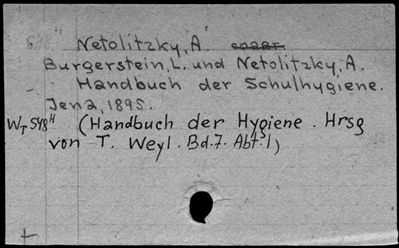 Netolitzky, A.
Burgerstein, L. und Netolitzky, A.
Handbuch der Schulhygiene.
Jena, 1895.
WT 548H (Handbuch der Hygiene. Hrsg
von T. Weyl. Bd. 7. Abt. 1)